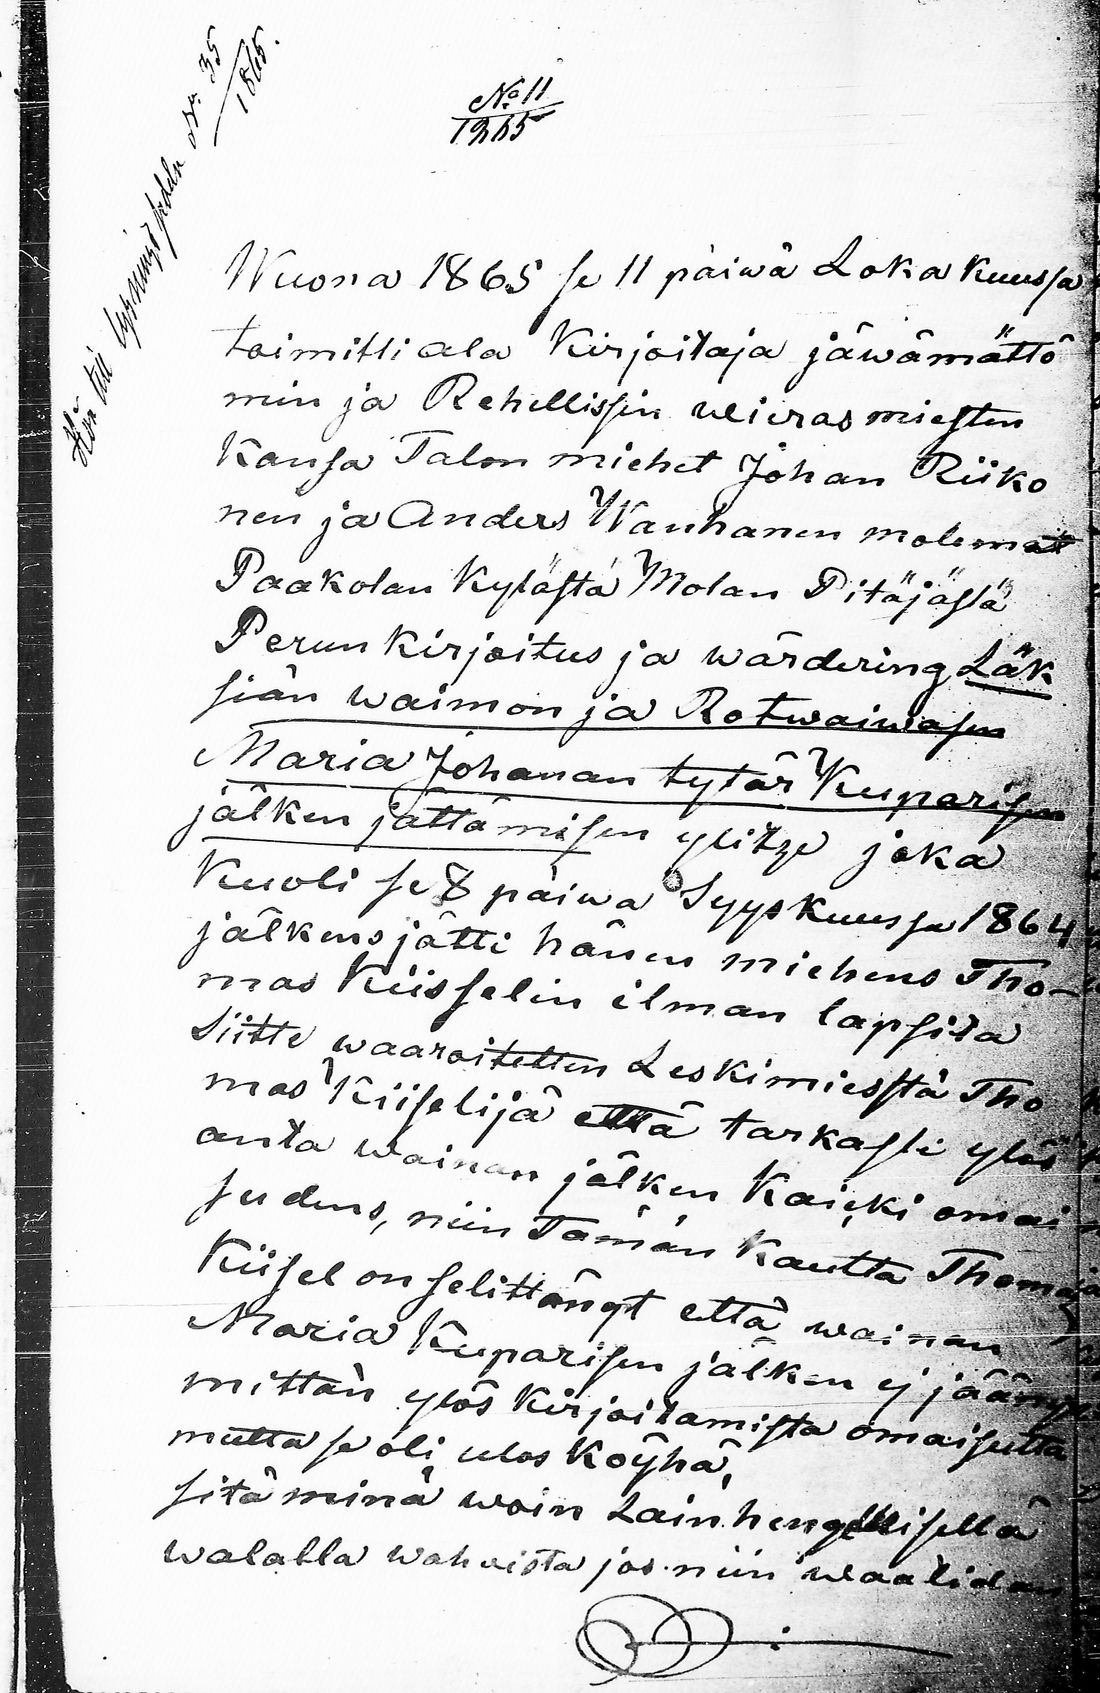 Hör till lysningssedeln No. 35
1865.
No 11
1865
Wuona 1865 se 11 päiwä Loka kuussa
toimitti ala Kirjoitaja jäwämättö
min ja Rehellissin wieras miesten
kansa Talon miehet Johan Riiko
nen ja Anders Wanhanen molemat
Paakolan kylästä Molan Pitäjästä
Perun kirjoitus ja wärdering Läk
siän waimon ja Rotwaiwasen
Maria Johanan tytär Kuparisen
jälken jättämisen ylitze joka
kuoli se 8 päiwa Syyskuussa 1864
jälkens jätti hänen miehens Tho-
mas Kiisselin ilman lapsita
Siitte waaroitetten Leskimiesstä Tho
mas Kiiselijä että tarkasti ylös
anta wainan jälken kaicki omai
sudens, niin Tämän kautta Thomas
Kiisel on selittänyt että wainan
Maria Kuparisen jälken ej jäänyt
mittän ylös kirjoitamista omaisutta
mutta se oli ulos köyhä,
sitä minä woin Lain hengellisellä
walalla wahwista jos niin waaditan